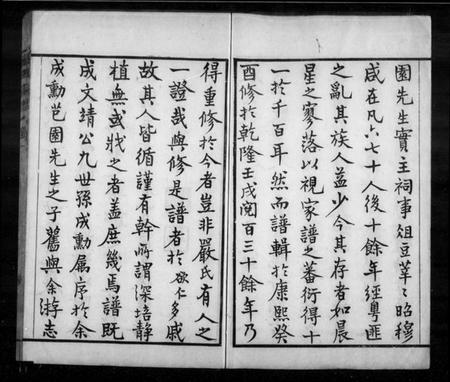 園先生實主祠事俎豆莘〻昭穆
咸在凡六七十人後十餘年經粵匪
之亂其族人益少今其存者如晨
星之寥落以視家譜之蕃衍得十
一於千百耳然而譜輯於康熙癸
酉修於乾隆壬戌閱百三十餘年乃
得重修於今者豈非嚴氏有人之
一證哉與修是譜者於欲仁多戚
故其人皆循謹有幹所謂深培靜
植無或戕之者蓋庶幾焉譜既
成文靖公九世孫成勳属序於余
成勳芑園先生之子舊與余游志